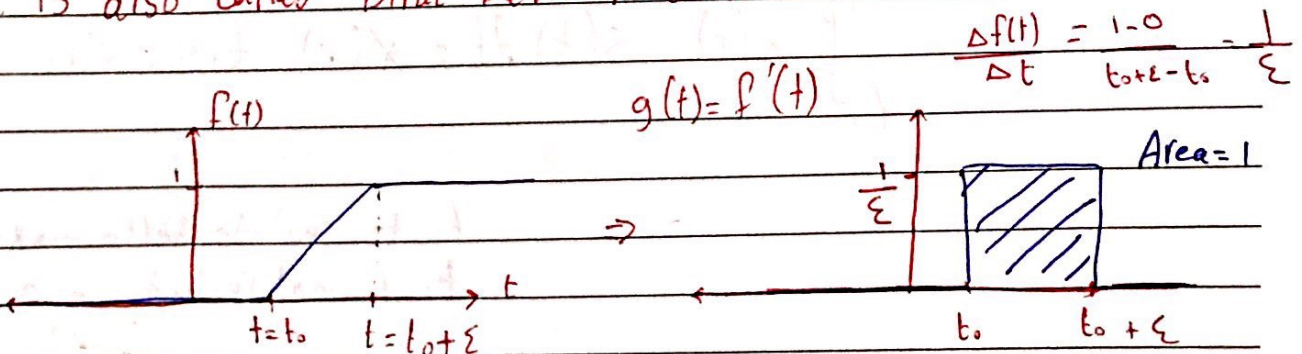 is also
Δf(t)/Δt = 1-0/t₀+ε-t₀ = 1/ε
f(t)
g(t)= f'(t)
Area= 1
1
1/ε
⇒
t
t=t₀
t=t₀+ε
t₀
t₀+ε